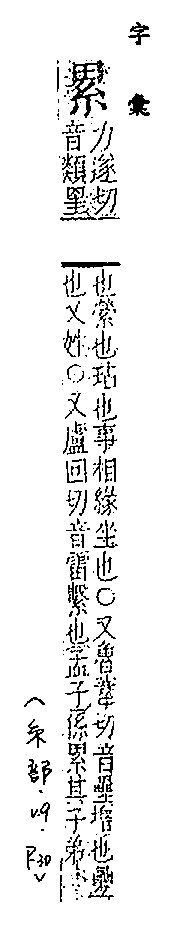 字彙
累
力遂切
音類
也縈也玷也事相緣坐也○又魯
切音壘增也
也又姓○又盧回切音雷繫也孟子係累其子弟
(糸部.v9.P30)